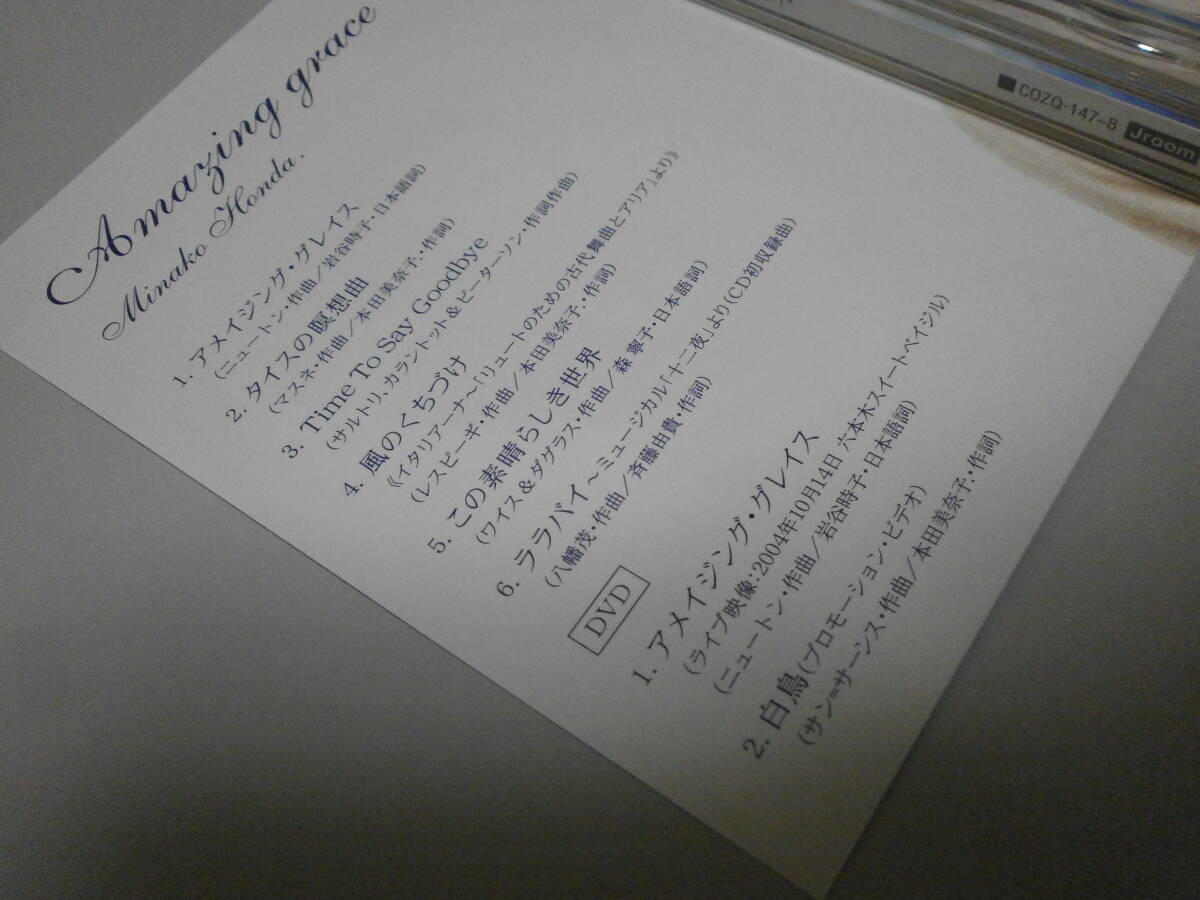 Amazing grace
Minako Honda.
1. アメイジング・グレイス
(ニュートン・作曲／岩谷時子・日本語詞)
2. タイスの瞑想曲
(マスネ・作曲／本田美奈子.・作詞)
3. Time To Say Goodbye
(サルトリ、カラントット&ピーターソン・作詞作曲)
4. 風のくちづけ
《イタリアーナ〜「リュートのための古代舞曲とアリア」より》
(レスピーギ・作曲／本田美奈子.・作詞)
5. この素晴らしき世界
(ワイス&ダグラス・作曲／森 寧子・日本語詞)
6. ララバイ〜ミュージカル「十二夜」より(CD初収録曲)
(八幡茂・作曲／斉藤由貴・作詞)
DVD
1. アメイジング・グレイス
(ライブ映像：2004年10月14日 六本木スイートベイジル)
(ニュートン・作曲／岩谷時子・日本語詞)
2. 白鳥(プロモーション・ビデオ)
(サン=サーンス・作曲／本田美奈子.・作詞)
COZQ-147-8
Jroom